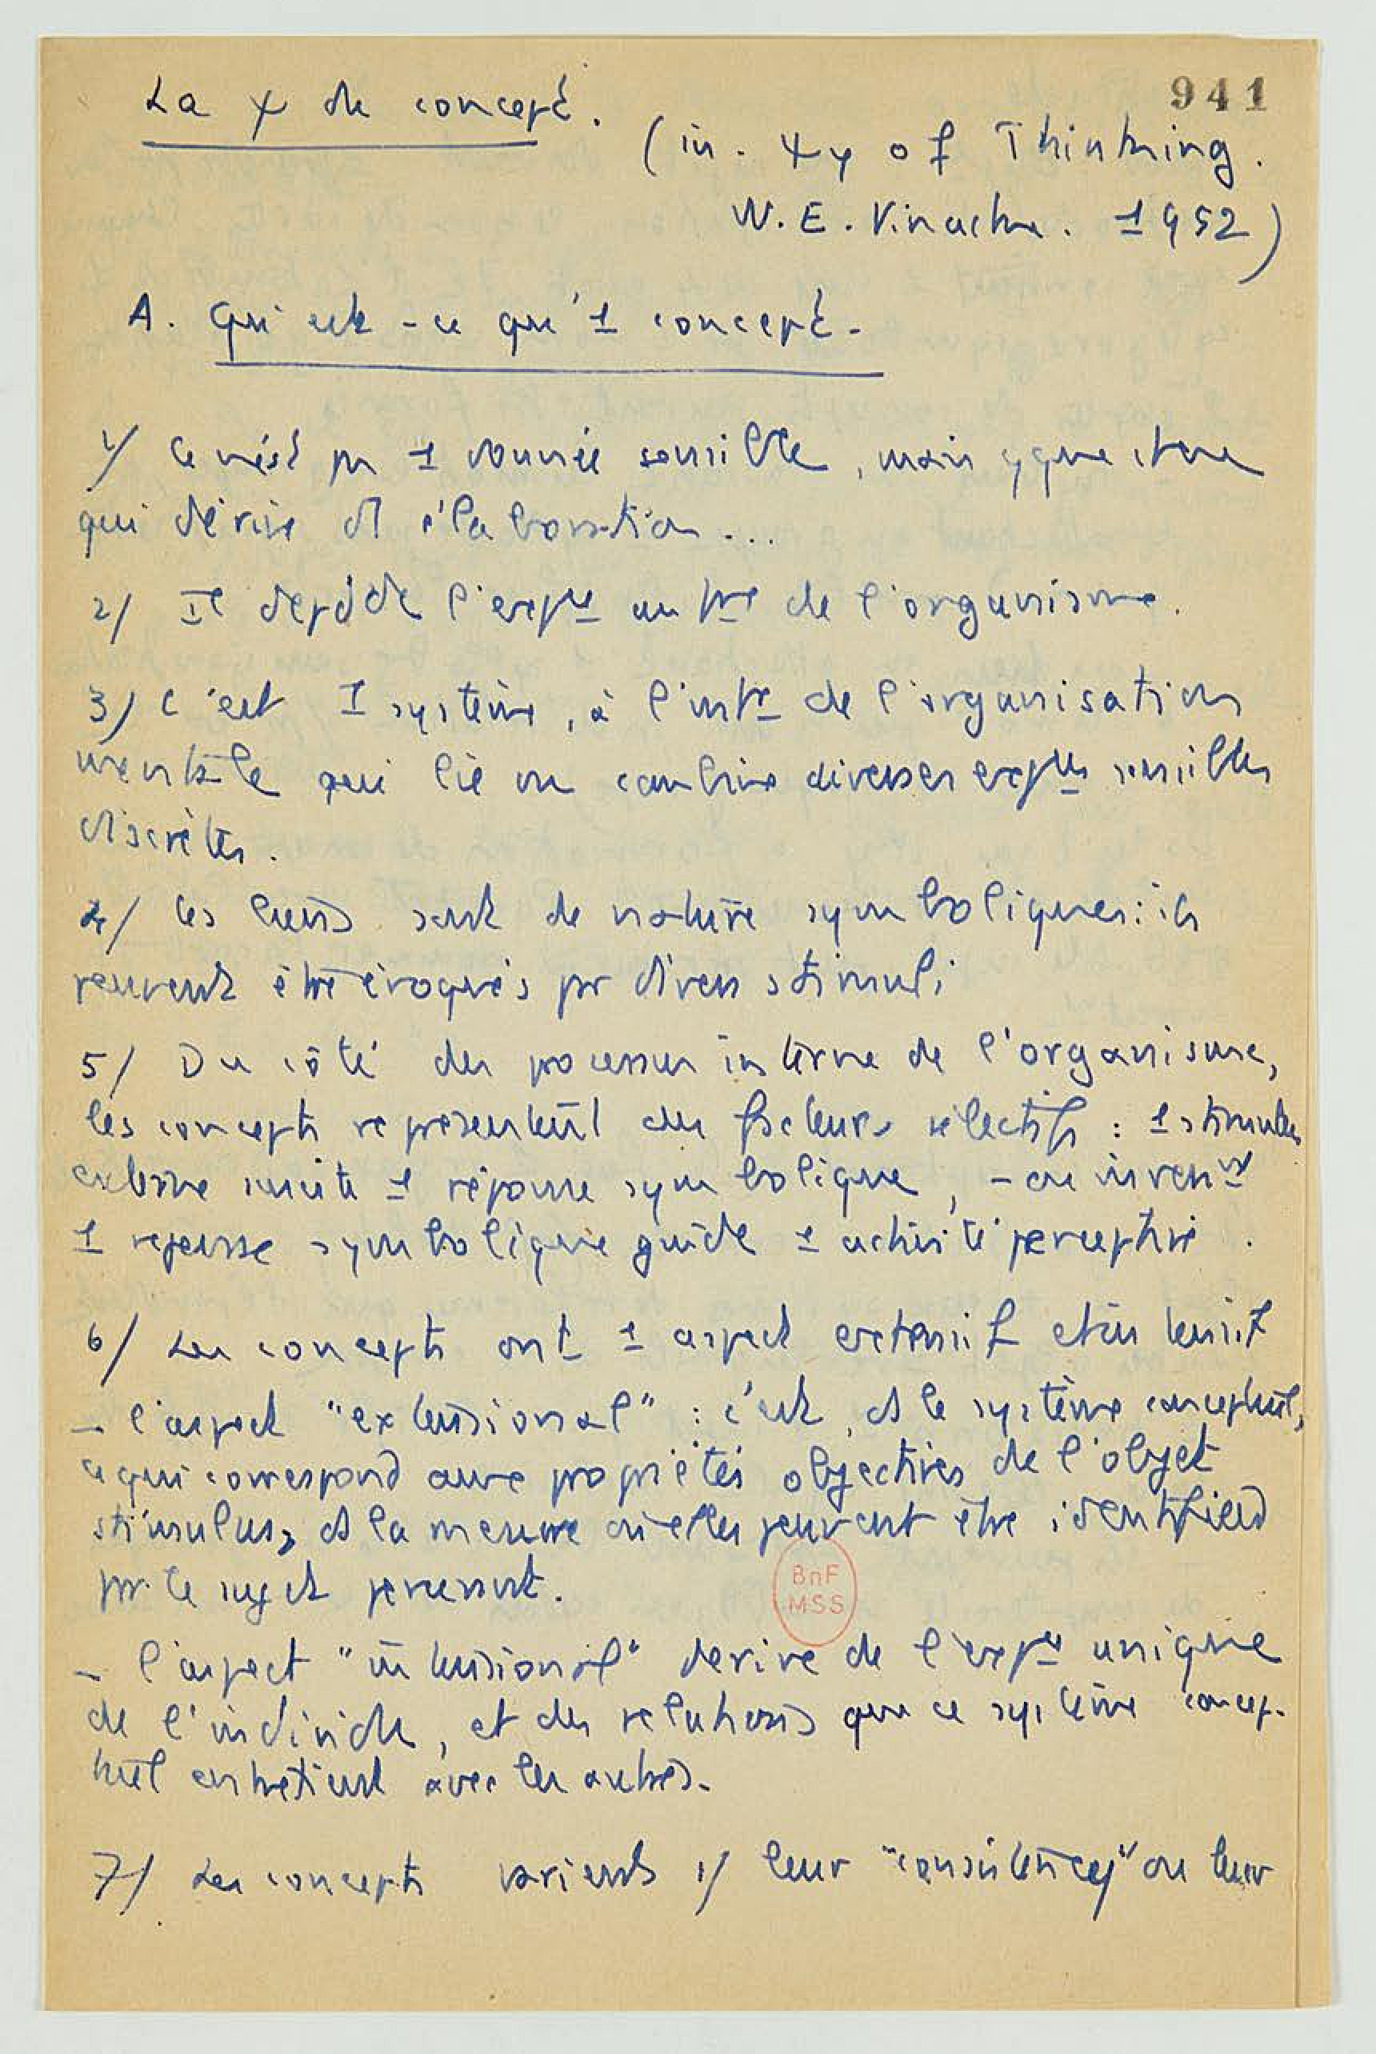 941
La ψ du concept.
(in. ψy of Thinking.
W. E. Vinacke. 1952)
A. Qu'est-ce qu'1 concept.
1/ Ce n'est pr 1 donnée sensible, mais qque chose
qui dérive d' élaboration...
2/ Il dépd de l'expce de l'organisme.
3/ C'est 1 système, à l'intr de l'organisation
mentale qui lie ou combine diverses expces sensibles
discrètes.
4/ Ces liens sont de nature symboliques : ils
peuvent être évoqués pr divers stimuli
5/ Du côté des processus interne de l'organisme,
les concepts représentent des facteurs sélectifs : 1 stimulus
externe suscite 1 réponse symbolique, – ou invert
1 réponse symbolique guide 1 activité perceptive.
6/ Les concepts ont 1 aspect extensif et intensif
– l'aspect "extensional" : c'est, ds le système conceptuel,
ce qui correspond aux propriétés objectives de l'objet
stimulus, ds la mesure où elles peuvent être identifiées
pr le sujet percevant.
BnF
MSS
– l'aspect "intensional" dérive de l'expce unique
de l'individu, et des relations que ce système concep-
tuel entretient avec les autres.
7/ Les concepts varient 1/ leur "consistency" ou leur